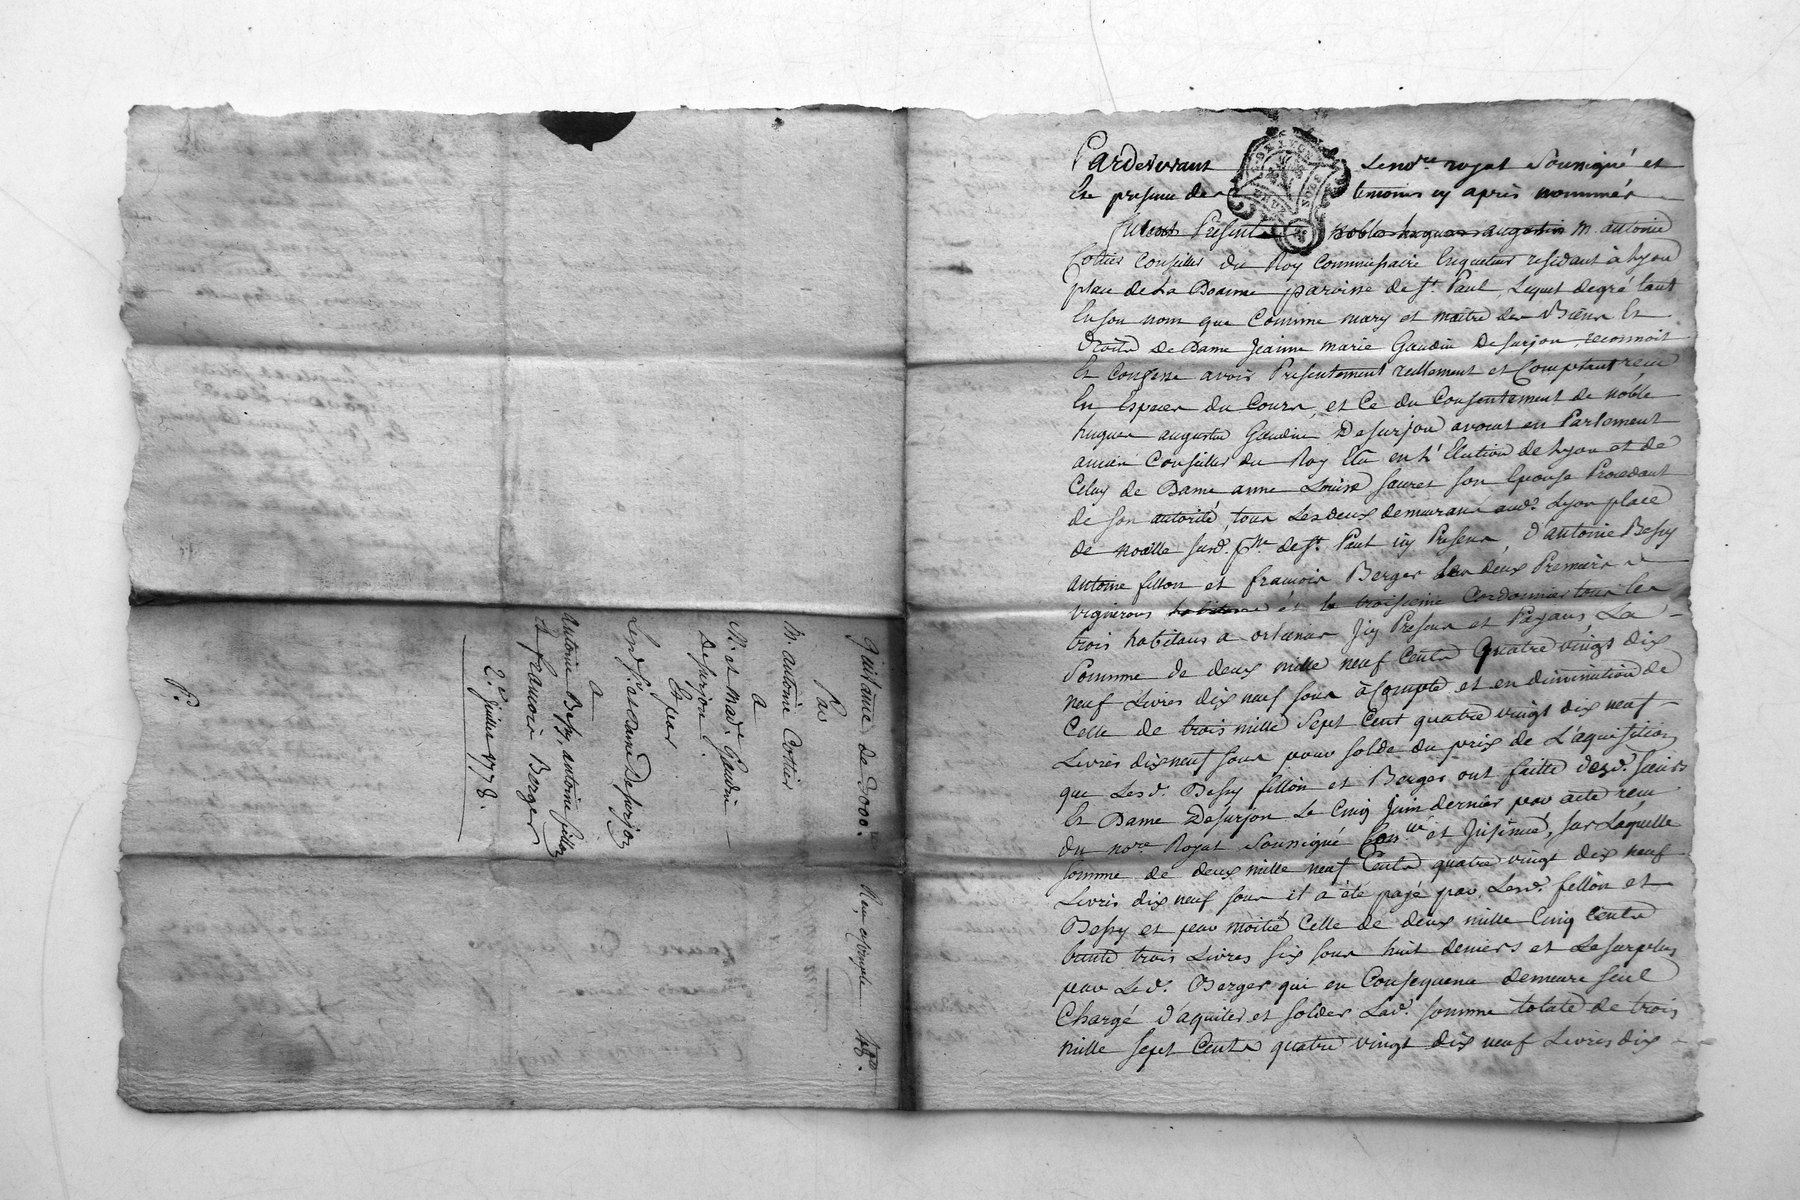 Quittance de 3000.tt
Par
M antoine Cottier
A
Mr. et Mad.e Gaudin
Desurjon
Et par
Lesd. Sr. et Dame Desurjon
a
antoine Bessy, antoine fillon
et francois Berger
2.e juillet 1778.
P.
Pardevant Le nore. royal Soussigné et
En presence des temoins cy après nommés
furent Présents noble hugues augustin M. antoine
Cottier Conseiller du Roy Commissaire Enqueteur residant à Lyon
place de La Doanne paroisse de St. Paul, Lequel degré tant
En son nom que Comme mary et maitre des Biens Et
Droits de Dame Jeanne marie Gaudin Desurjon, reconnoit
Et Confesse avoir Presentement reellement et Comptant reçu
En Especes du Cours, et Ce du Consentement de noble
hugues augustin Gaudin Desurjon avocat en Parlement
ancien Conseiller du Roy Elu en L'Election de Lyon et de
Celuy de Dame anne Louise Sauret son Epouse Procedant
de son autorité, tous Les deux demeurans aud. Lyon place
de noaille susd. psse. de St. Paul icy Presens, d'antoine Bessy
antoine fillon et francois Berger Les deux Premiers
vignerons habitans et le troisieme Cordonnier tous les
trois habitans a orlienas Icy Presens et Payans, La
Somme de deux mille neuf Cents quatre vingt dix
neuf Livres dix neuf sous à Compte et en diminution de
Celle de trois mille Sept Cent quatre vingt dix neuf
Livres dix neuf sous pour solde du prix de L'aquisition
que Lesd. Bessy fillon et Berger ont faitte desd. Sieur
Et Dame Desurjon Le Cinq Juin dernier par acte reçu
du nore. Royal Soussigné Conllé et Insinué, sur Laquelle
somme de deux mille neuf Cents quatre vingt dix neuf
Livres dix neuf sous il a été payé par Lesd. fillon et
Bessy et par moitié Celle de deux mille Cinq Cents
trente trois Livres six sous huit deniers et Le surplus
par Led. Berger qui en Consequence demeure seul
Chargé d'aquiter et solder Lad. somme totale de trois
mille sept Cents quatre vingt dix neuf Livres dix